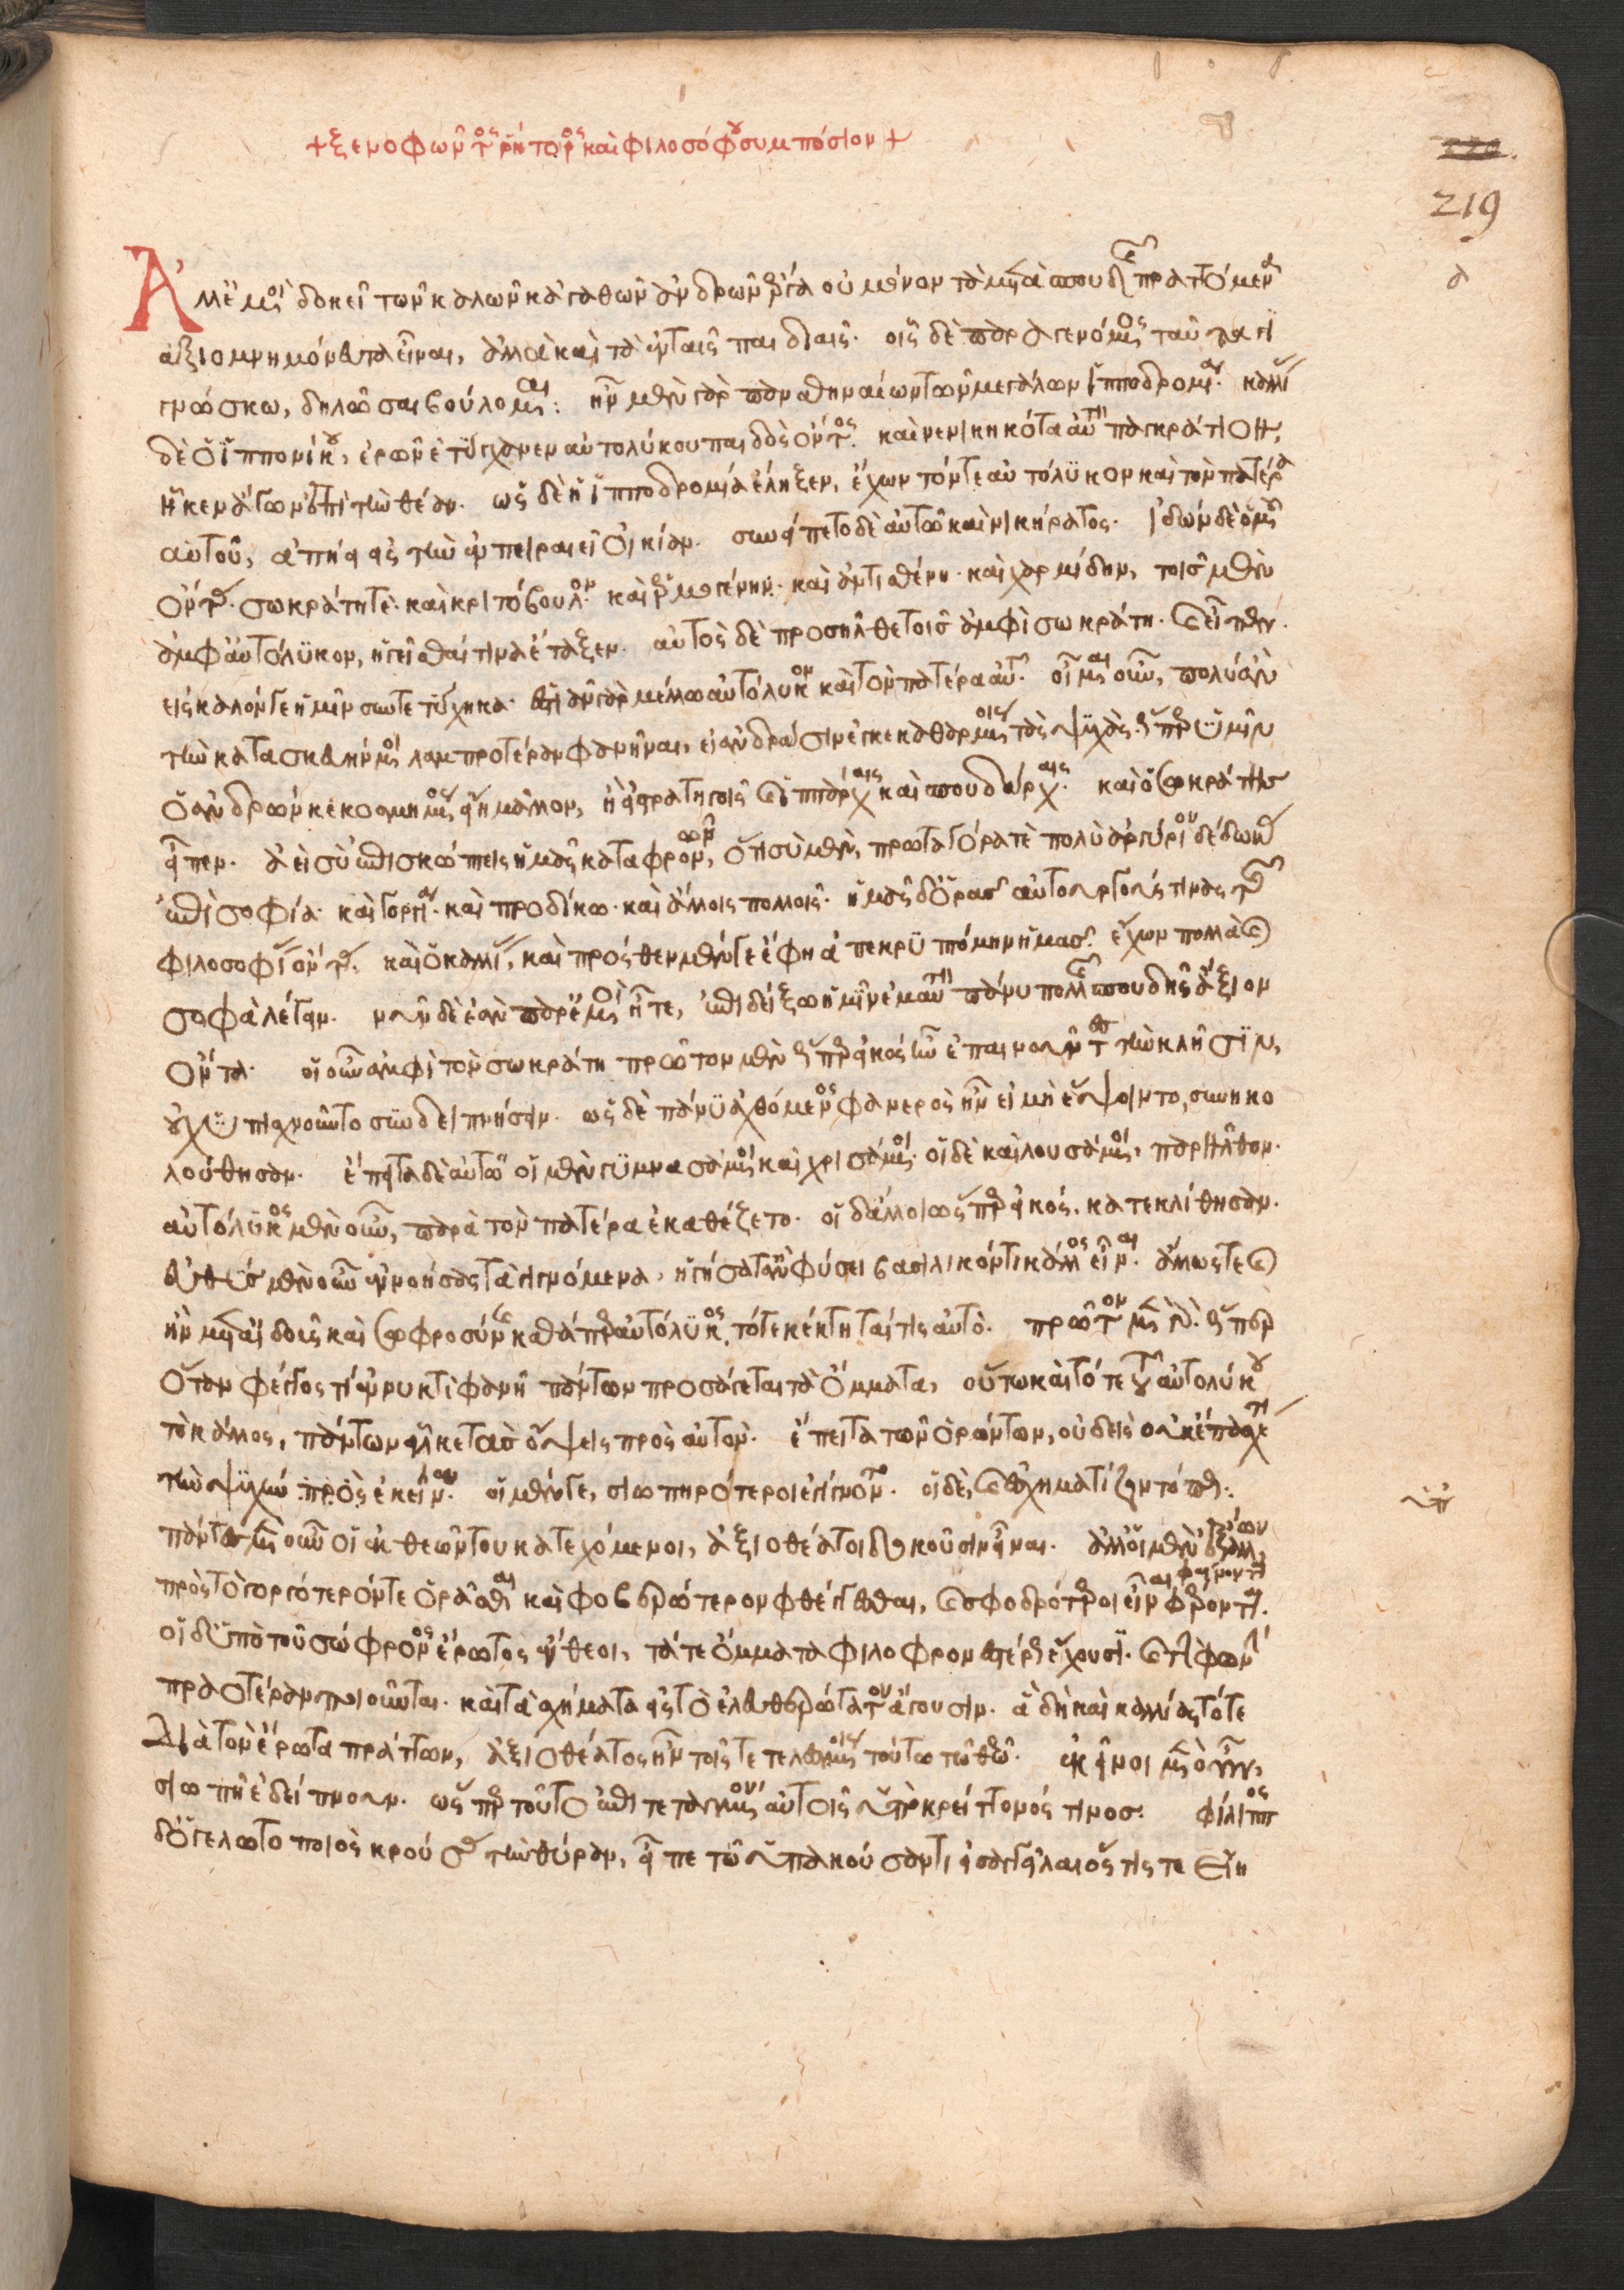 + ξενοφῶντος ῥήτορος καὶ φιλοσόφου συμπόσιον +
219
α
Ἀλλ' ἐμοὶ δοκεῖ τῶν καλῶν κἀγαθῶν ἀνδρῶν ἔργα οὐ μόνον τὰ μετὰ σπουδῆς πραττόμενα
ἀξιομνημόνευτα εἶναι, ἀλλὰ καὶ τὰ ἐν ταῖς παιδιαῖς. οἷς δὲ παραγενόμενος ταῦτα γι
γνώσκω, δηλῶσαι βούλομαι: ἦν μὲν γὰρ παναθηναίων τῶν μεγάλων ἱπποδρομία. καλλίας
δὲ ὁ ἱππονίκου, ἐρῶν ἐτύγχανεν αὐτολύκου παιδὸς ὄντος. καὶ νενικηκότα αὐτὸν παγκράτιον,
ἧκεν ἄγων ἐπὶ τὴν θέαν. ὡς δὲ ἡ ἱπποδρομία ἔληξεν, ἔχων τόν τε αὐτόλυκον καὶ τὸν πατέρα
αὐτοῦ, ἀπῄει εἰς τὴν ἐν πειραιεῖ οἰκίαν. συνείπετο δὲ αὐτῶ καὶ νικήρατος. ἰδὼν δὲ ὁμοῦ
ὄντας. σωκράτη τὲ. καὶ κριτόβουλον. καὶ ἑρμογένην. καὶ ἀντισθένην. καὶ χαρμίδην, τοῖς μὲν
ἀμφ' αὐτόλυκον, ἡγεῖσθαί τινα ἔταξεν. αὐτὸς δὲ προσῆλθε τοῖς ἀμφὶ σωκράτη. καὶ εἶπεν.
εἰς καλόν γε ἡμῖν συντετύχηκα. ἑστιᾶν γὰρ μέλλω αὐτόλυκον καὶ τὸν πατέρα αὐτοῦ. οἶμαι οὖν, πολὺ ἂν
τὴν κατασκευήν μοι λαμπροτέραν φανῆναι, εἰ ἀνδράσιν ἐκκεκαθαρμένοις τὰς ψυχὰς ὥσπερ ὑμῖν
ὁ ἀνδρὼν κεκοσμημένος εἴη μᾶλλον, ἢ εἰ στρατηγοῖς καὶ ἱππάρχαις καὶ σπουδάρχαις. καὶ ὁ σωκράτης
εἶπεν. ἀεὶ σὺ ἐπισκώπτεις ἡμᾶς καταφρονῶν, ὅτι σὺ μὲν, πρωταγόρα τὲ πολὺ ἀργύριον δέδωκας
ἐπὶ σοφία. καὶ γοργία. καὶ προδίκω. καὶ ἄλλοις πολλοῖς. ἡμᾶς δ' ὁρᾶς αὐτουργούς τινας τῆς
φιλοσοφίας ὄντας. καὶ ὁ καλλίας, καὶ πρόσθεν μέν γε ἔφη ἀπεκρυπτόμην ἡμᾶς ἔχων πολλὰ καὶ
σοφὰ λέγειν. νῦν δὲ ἐὰν παρ' ἐμοὶ ἦτε, ἐπιδείξω ἡμῖν ἐμαυτὸν πάνυ πολλῆς σπουδῆς ἄξιον
ὄντα. οἱ οὖν ἀμφὶ τὸν σωκράτη πρῶτον μὲν ὥσπερ εἰκὸς ἦν ἐπαινοῦντες τὴν κλῆσιν,
οὐχ ὑπισχνοῦντο συνδειπνήσειν. ὡς δὲ πάνυ ἀχθόμενος φανερὸς ἦν εἰ μὴ ἕψοιντο, συνηκο
λούθησαν. ἔπειτα δὲ αὐτῶ οἱ μὲν γυμνασάμενοι καὶ χρισάμενοι. οἱ δὲ καὶ λουσάμενοι, παρῆλθον.
αὐτόλυκος μὲν οὖν, παρὰ τὸν πατέρα ἐκαθέζετο. οἱ δ' ἄλλοι ὥσπερ εἰκός, κατεκλίθησαν.
εὐθὺς μὲν οὖν ἐννοήσας τὰ γιγνόμενα, ἡγήσατ' ἂν φύσει βασιλικόν τι κάλλος εἶναι. ἄλλως τε καὶ
ἢν μετὰ αἰδοῦς καὶ σωφροσύνης καθάπερ αὐτόλυκος τότε κέκτηταί τις αὐτό. πρῶτον μὲν γὰρ ὥσπερ
ὅταν φέγγος τι ἐν νυκτὶ φανῆ πάντων προσάγεται τὰ ὄμματα, οὕτω καὶ τότε τοῦ αὐτολύκου
τὸ κάλλος, πάντων εἷλκε τὰς ὄψεις πρὸς αὐτόν. ἔπειτα τῶν ὁρώντων, οὐδεὶς οὐκ ἔπασχέ τι
τὴν ψυχὴν πρὸς ἐκείνου. οἱ μέν γε, σιωπηρότεροι ἐγίγνοντο. οἱ δὲ, καὶ ἐσχηματίζοντό πως.
πάντες μὲν οὖν οἱ ἐκ θεῶν του κατεχόμενοι, ἀξιοθέατοι δοκοῦσιν εἶναι. ἀλλ' οἱ μὲν ἐξ ἄλλων
πρὸς τὸ γοργότερόν τε ὁρᾶσθαι καὶ φοβερώτερον φθέγγεσθαι, καὶ σφοδρότεροι εἶναι φέρονται.
οἱ δ' ὑπὸ τοῦ σώφρονος ἔρωτος ἔνθεοι, τά τε ὄμματα φιλοφρονεστέρως ἔχουσι. καὶ τὴν φωνὴν
πραοτέραν ποιοῦνται. καὶ τὰ σχήματα εἰς τὸ ἐλευθεριώτατον ἄγουσιν. ἃ δὴ καὶ καλλίας τότε
διὰ τὸν ἔρωτα πράττων, ἀξιοθέατος ἦν τοῖς τετελεσμένοις τούτω τῶ θεῶ. ἐκεῖνοι μὲν οὖν,
σιωπῆ ἐδείπνουν. ὥσπερ τοῦτο ἐπιτεταγμένον αὐτοῖς ὑπὸ κρείττονός τινος. φίλιππος
δ' ὁ γελωτοποιὸς κρούσας τὴν θύραν, εἶπε τῶ ὑπακούσαντι εἰσαγγεῖλαι ὅστις τε εἴη